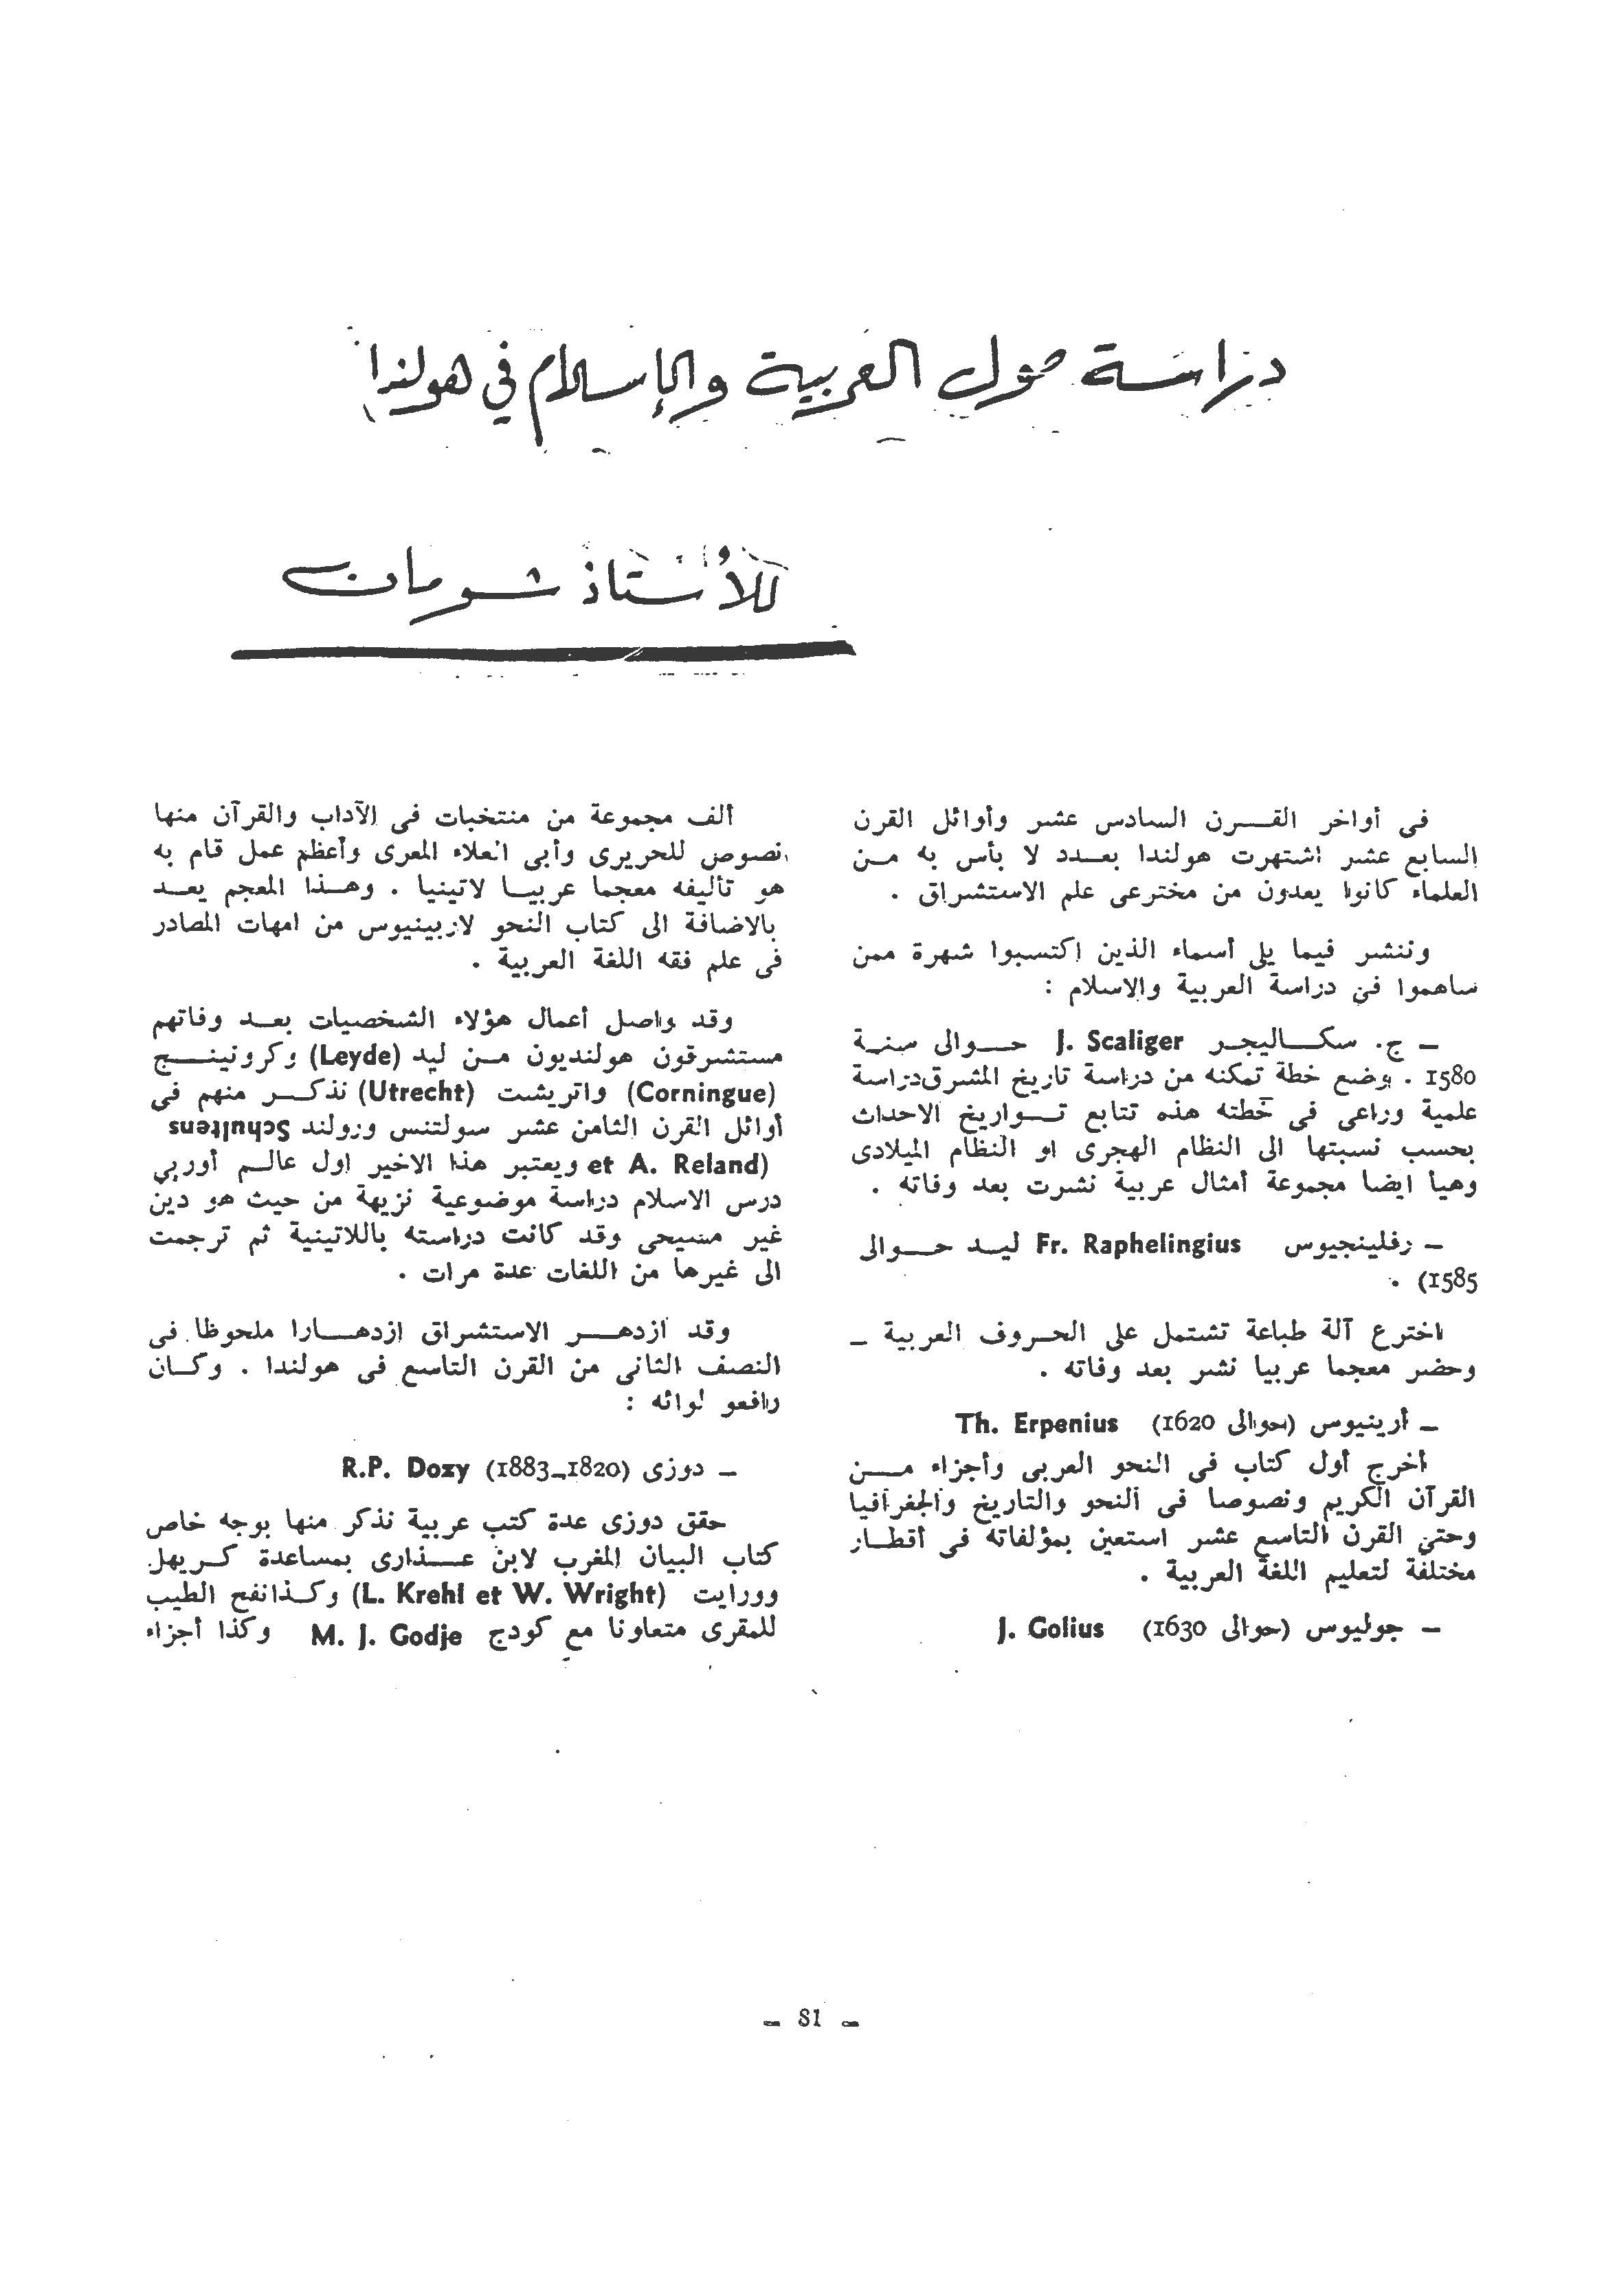 دراسة حول العربية والإسلام في هولندا
للأستاذ شومان
في أواخر القرن السادس عشر وأوائل القرن
السابع عشر اشتهرت هولندا بعدد لا بأس به من
العلماء كانوا يعدون من مخترعى علم الاستشراق .
وننشر فيما يلى أسماء الذين اكتسبوا شهرة ممن
ساهموا في دراسة العربية والاسلام :
— ج. سكاليجر J. Scaliger حوالى سنة
1580 . وضع خطة تمكنه من دراسة تاريخ المشرق دراسة
علمية وراعى فى خطته هذه تتابع تواريخ الاحداث
بحسب نسبتها الى النظام الهجرى او النظام الميلادى
وهيأ ايضا مجموعة أمثال عربية نشرت بعد وفاته .
— رفلينجيوس Fr. Raphelingius ليد حوالى
1585) .
اخترع آلة طباعة تشتمل على الحروف العربية —
وحضر معجما عربيا نشر بعد وفاته .
— أرينيوس (حوالى 1620) Th. Erpenius
أخرج أول كتاب فى النحو العربى وأجزاء من
القرآن الكريم ونصوصا فى النحو والتاريخ والجغرافيا
وحتى القرن التاسع عشر استعين بمؤلفاته فى أقطار
مختلفة لتعليم اللغة العربية .
— جوليوس (حوالى 1630) J. Golius
ألف مجموعة من منتخبات فى الآداب والقرآن منها
نصوص للحريرى وأبى العلاء المعرى وأعظم عمل قام به
هو تأليفه معجما عربيا لاتينيا . وهذا المعجم يعد
بالاضافة الى كتاب النحو لاربينيوس من امهات المصادر
فى علم فقه اللغة العربية .
وقد واصل أعمال هؤلاء الشخصيات بعد وفاتهم
مستشرقون هولنديون من ليد (Leyde) وكرونينج
(Corningue) واتريشت (Utrecht) نذكر منهم فى
أوائل القرن الثامن عشر سولتنس ورولند Schultens
et A. Reland) ويعتبر هذا الاخير اول عالم أوربي
درس الاسلام دراسة موضوعية نزيهة من حيث هو دين
غير مسيحى وقد كانت دراسته باللاتينية ثم ترجمت
الى غيرها من اللغات عدة مرات .
وقد ازدهر الاستشراق ازدهارا ملحوظا فى
النصف الثانى من القرن التاسع فى هولندا . وكان
رافعو لوائه :
— دوزى (1820—1883) R.P. Dozy
حقق دوزى عدة كتب عربية نذكر منها بوجه خاص
كتاب البيان المغرب لابن عذارى بمساعدة كريهل
وورايت (L. Krehl et W. Wright) وكذا نفح الطيب
للمقرى متعاونا مع كودج M. J. Godje وكذا أجزاء
— 81 —